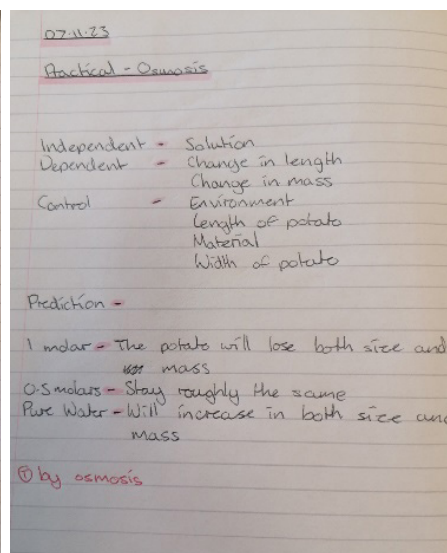 07.11.23
Practical - Osmosis
Independent - Solution
Dependent - Change in length
Change in mass
Control - Environment
Length of potato
Material
Width of potato
Prediction -
1 molar - The potato will lose both size and
mass
0.5 molars - Stay roughly the same
Pure Water - Will increase in both size and
mass
Ⓣ by osmosis